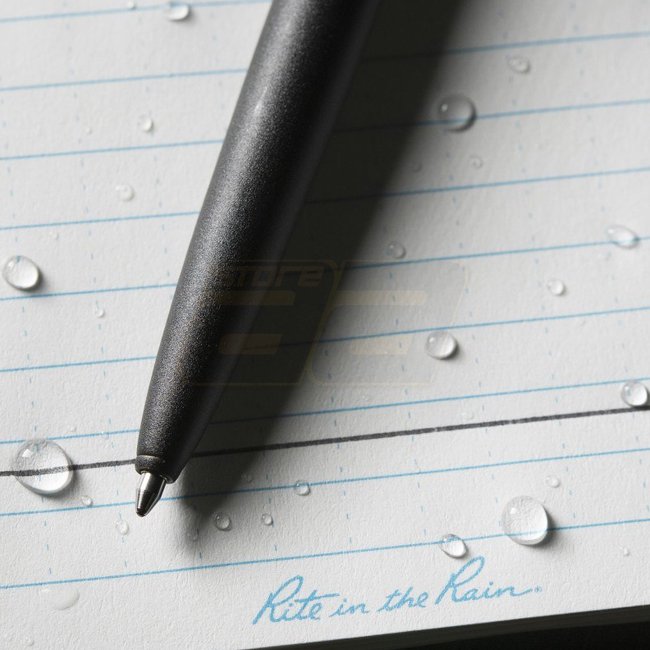 store
Rite in the Rain®